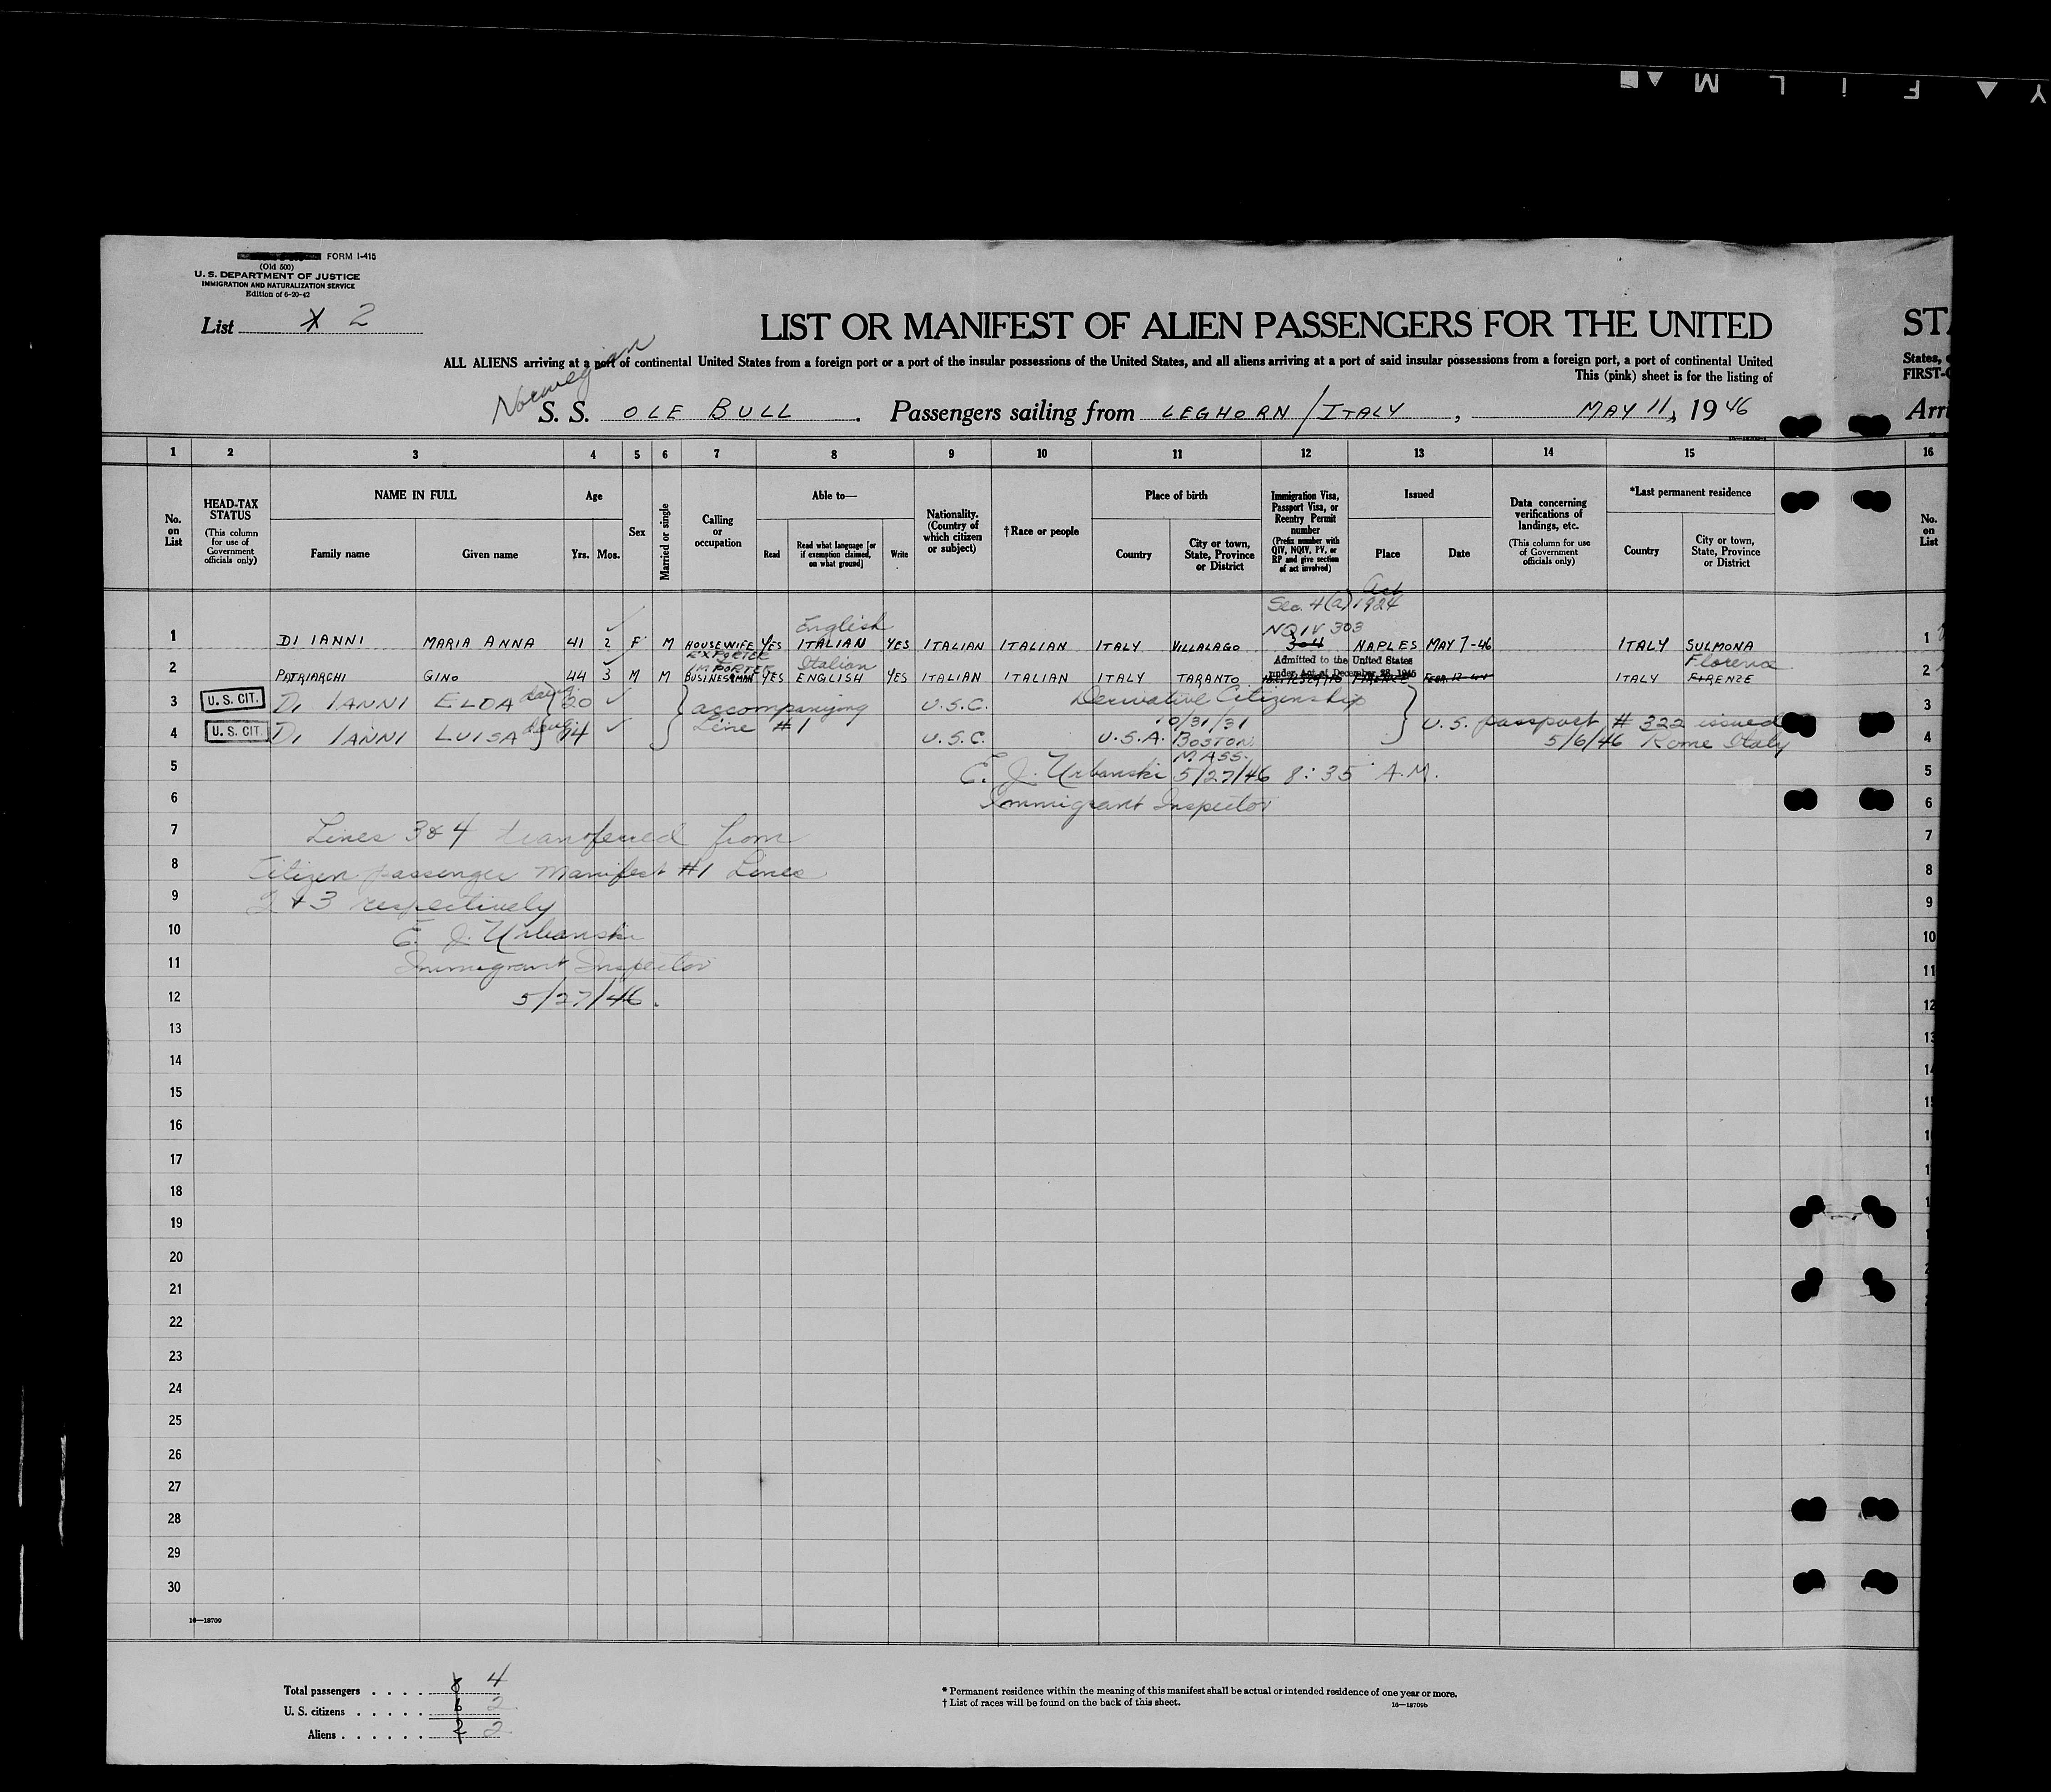 Y ▲ F i L M ▲■
FORM I-415
(Old 500)
U. S. DEPARTMENT OF JUSTICE
IMMIGRATION AND NATURALIZATION SERVICE
Edition of 6-20-42
List 2
LIST OR MANIFEST OF ALIEN PASSENGERS FOR THE UNITED
STA
ALL ALIENS arriving at a port of continental United States from a foreign port or a port of the insular possessions of the United States, and all aliens arriving at a port of said insular possessions from a foreign port, a port of continental United
States,
This (pink) sheet is for the listing of
FIRST-
Norwegian
S. S. OLE BULL. Passengers sailing from LEGHORN / ITALY, MAY 11, 1946
Arri
1 2 3 4 5 6 7 8 9 10 11 12 13 14 15 16
No. on List
HEAD-TAX STATUS
(This column for use of Government officials only)
NAME IN FULL
Family name Given name
Age
Yrs. Mos.
Sex
Married or single
Calling or occupation
Able to—
Read
Read what language [or if exemption claimed, on what ground]
Write
Nationality. (Country of which citizen or subject)
†Race or people
Place of birth
Country
City or town, State, Province or District
Immigration Visa, Passport Visa, or Reentry Permit number
(Prefix number with QIV, NQIV, PV, or RP and give section of act involved)
Issued
Place Date
Data concerning verifications of landings, etc.
(This column for use of Government officials only)
*Last permanent residence
Country
City or town, State, Province or District
No. on List
Act
Sec. 4(a) 1924
English NQIV 303
1 DI IANNI MARIA ANNA 41 2 F M HOUSEWIFE YES ITALIAN YES ITALIAN ITALIAN ITALY VILLALAGO 304 NAPLES MAY 7-46 ITALY SULMONA 1
EXPORTER
IMPORTER Italian Admitted to the United States Florence
under Act of December 28, 1945
2 PATRIARCHI GINO 44 3 M M BUSINESSMAN YES ENGLISH YES ITALIAN ITALIAN ITALY TARANTO FIRENZE ITALY FIRENZE 2
3 U. S. CIT. DI IANNI ELDA daug 20 accompanying U.S.C. Derivative Citizenship 3
10/31/31 U.S. passport # 322 issued
4 U. S. CIT. DI IANNI LUISA daug 14 Line #1 U.S.C. U.S.A. BOSTON 5/6/46 Rome Italy 4
MASS.
5 E. J. Urbanski 5/27/46 8:35 A.M. 5
6 Immigrant Inspector 6
7 Lines 3 & 4 transferred from 7
8 Citizen passenger Manifest #1 Lines 8
9 2 & 3 respectively 9
10 E. J. Urbanski 10
11 Immigrant Inspector 11
12 5/27/46. 12
13 13
14 14
15 15
16
17
18
19
20
21
22
23
24
25
26
27
28
29
30
16—18709
Total passengers . . . . 8 4
U. S. citizens . . . . . 6 2
Aliens . . . . . . 2 2
* Permanent residence within the meaning of this manifest shall be actual or intended residence of one year or more.
† List of races will be found on the back of this sheet.
16—18709b